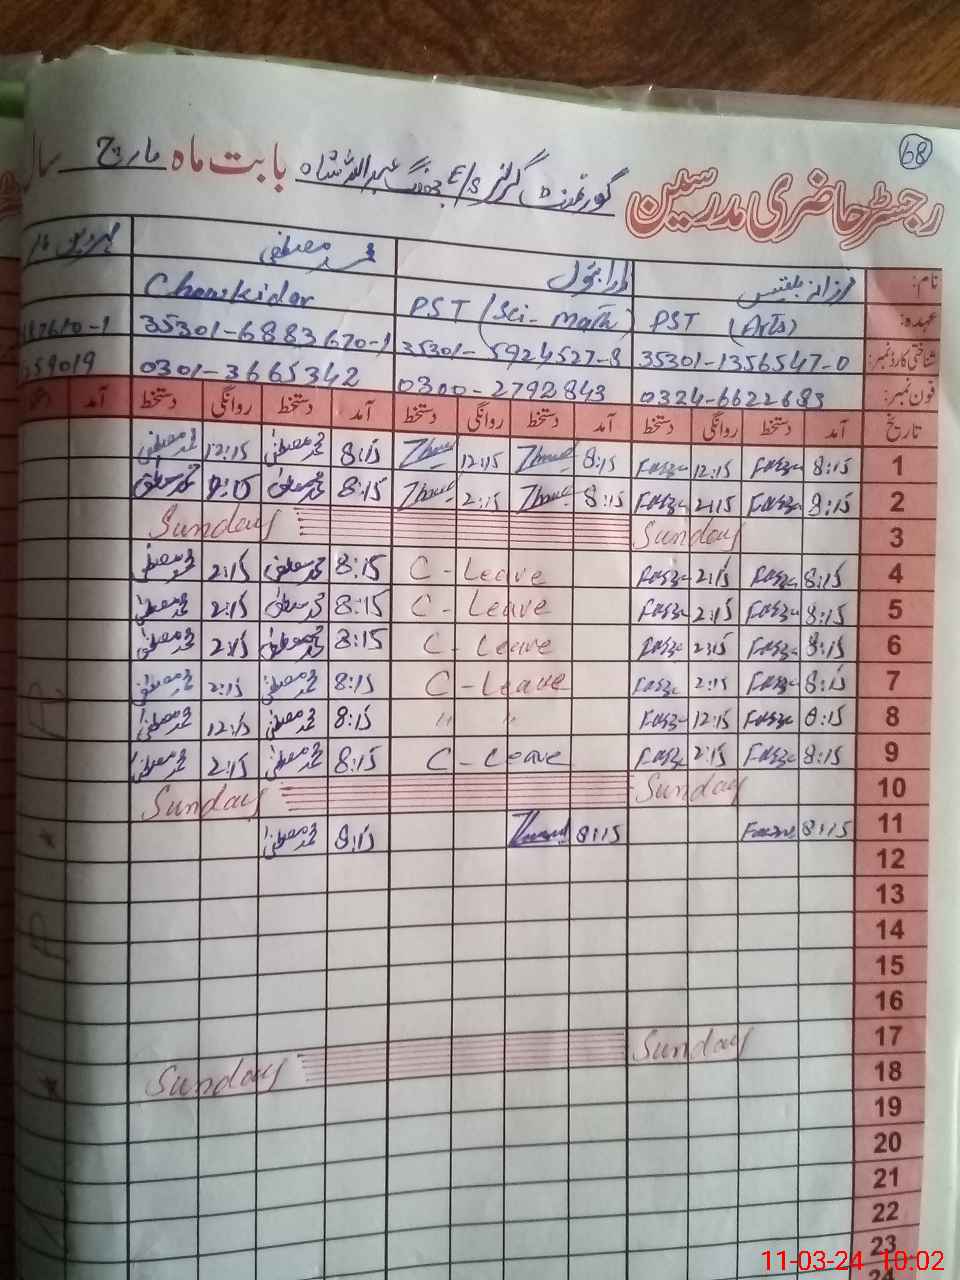 68
رجسٹر حاضری مدرسین گورنمنٹ گرلز E/S عبداللہ شاہ بابت ماہ مارچ سال
نام: فرزانہ بلقیس محمد مصطفیٰ
عہدہ: PST (Arts) PST (Sci-Math) Chowkidar
شناختی کارڈ نمبر: 35301-1356547-0 35301-5924527-8 35301-6883670-1
فون نمبر: 0324-6622683 0300-2792843 0301-3665342 59019
تاریخ آمد دستخط روانگی دستخط آمد دستخط روانگی دستخط آمد دستخط روانگی دستخط آمد
1 8:15 12:15 8:15 12:15 8:15 محمد مصطفیٰ 12:15 محمد مصطفیٰ
2 8:15 2:15 8:15 2:15 8:15 محمد مصطفیٰ محمد مصطفیٰ
3 Sunday Sunday
4 8:15 2:15 C-Leave 8:15 محمد مصطفیٰ 2:15 محمد مصطفیٰ
5 8:15 2:15 C-Leave 8:15 محمد مصطفیٰ 2:15 محمد مصطفیٰ
6 8:15 2:15 C-Leave 8:15 محمد مصطفیٰ 2:15 محمد مصطفیٰ
7 8:15 2:15 C-Leave 8:15 محمد مصطفیٰ 2:15 محمد مصطفیٰ
8 8:15 12:15 " " 8:15 محمد مصطفیٰ 12:15 محمد مصطفیٰ
9 8:15 2:15 C-Leave 8:15 محمد مصطفیٰ 2:15 محمد مصطفیٰ
10 Sunday Sunday
11 8:15 8:15 8:15 محمد مصطفیٰ
12
13
14
15
16
17 Sunday Sunday
18
19
20
21
22
23
24
11-03-24 10:02